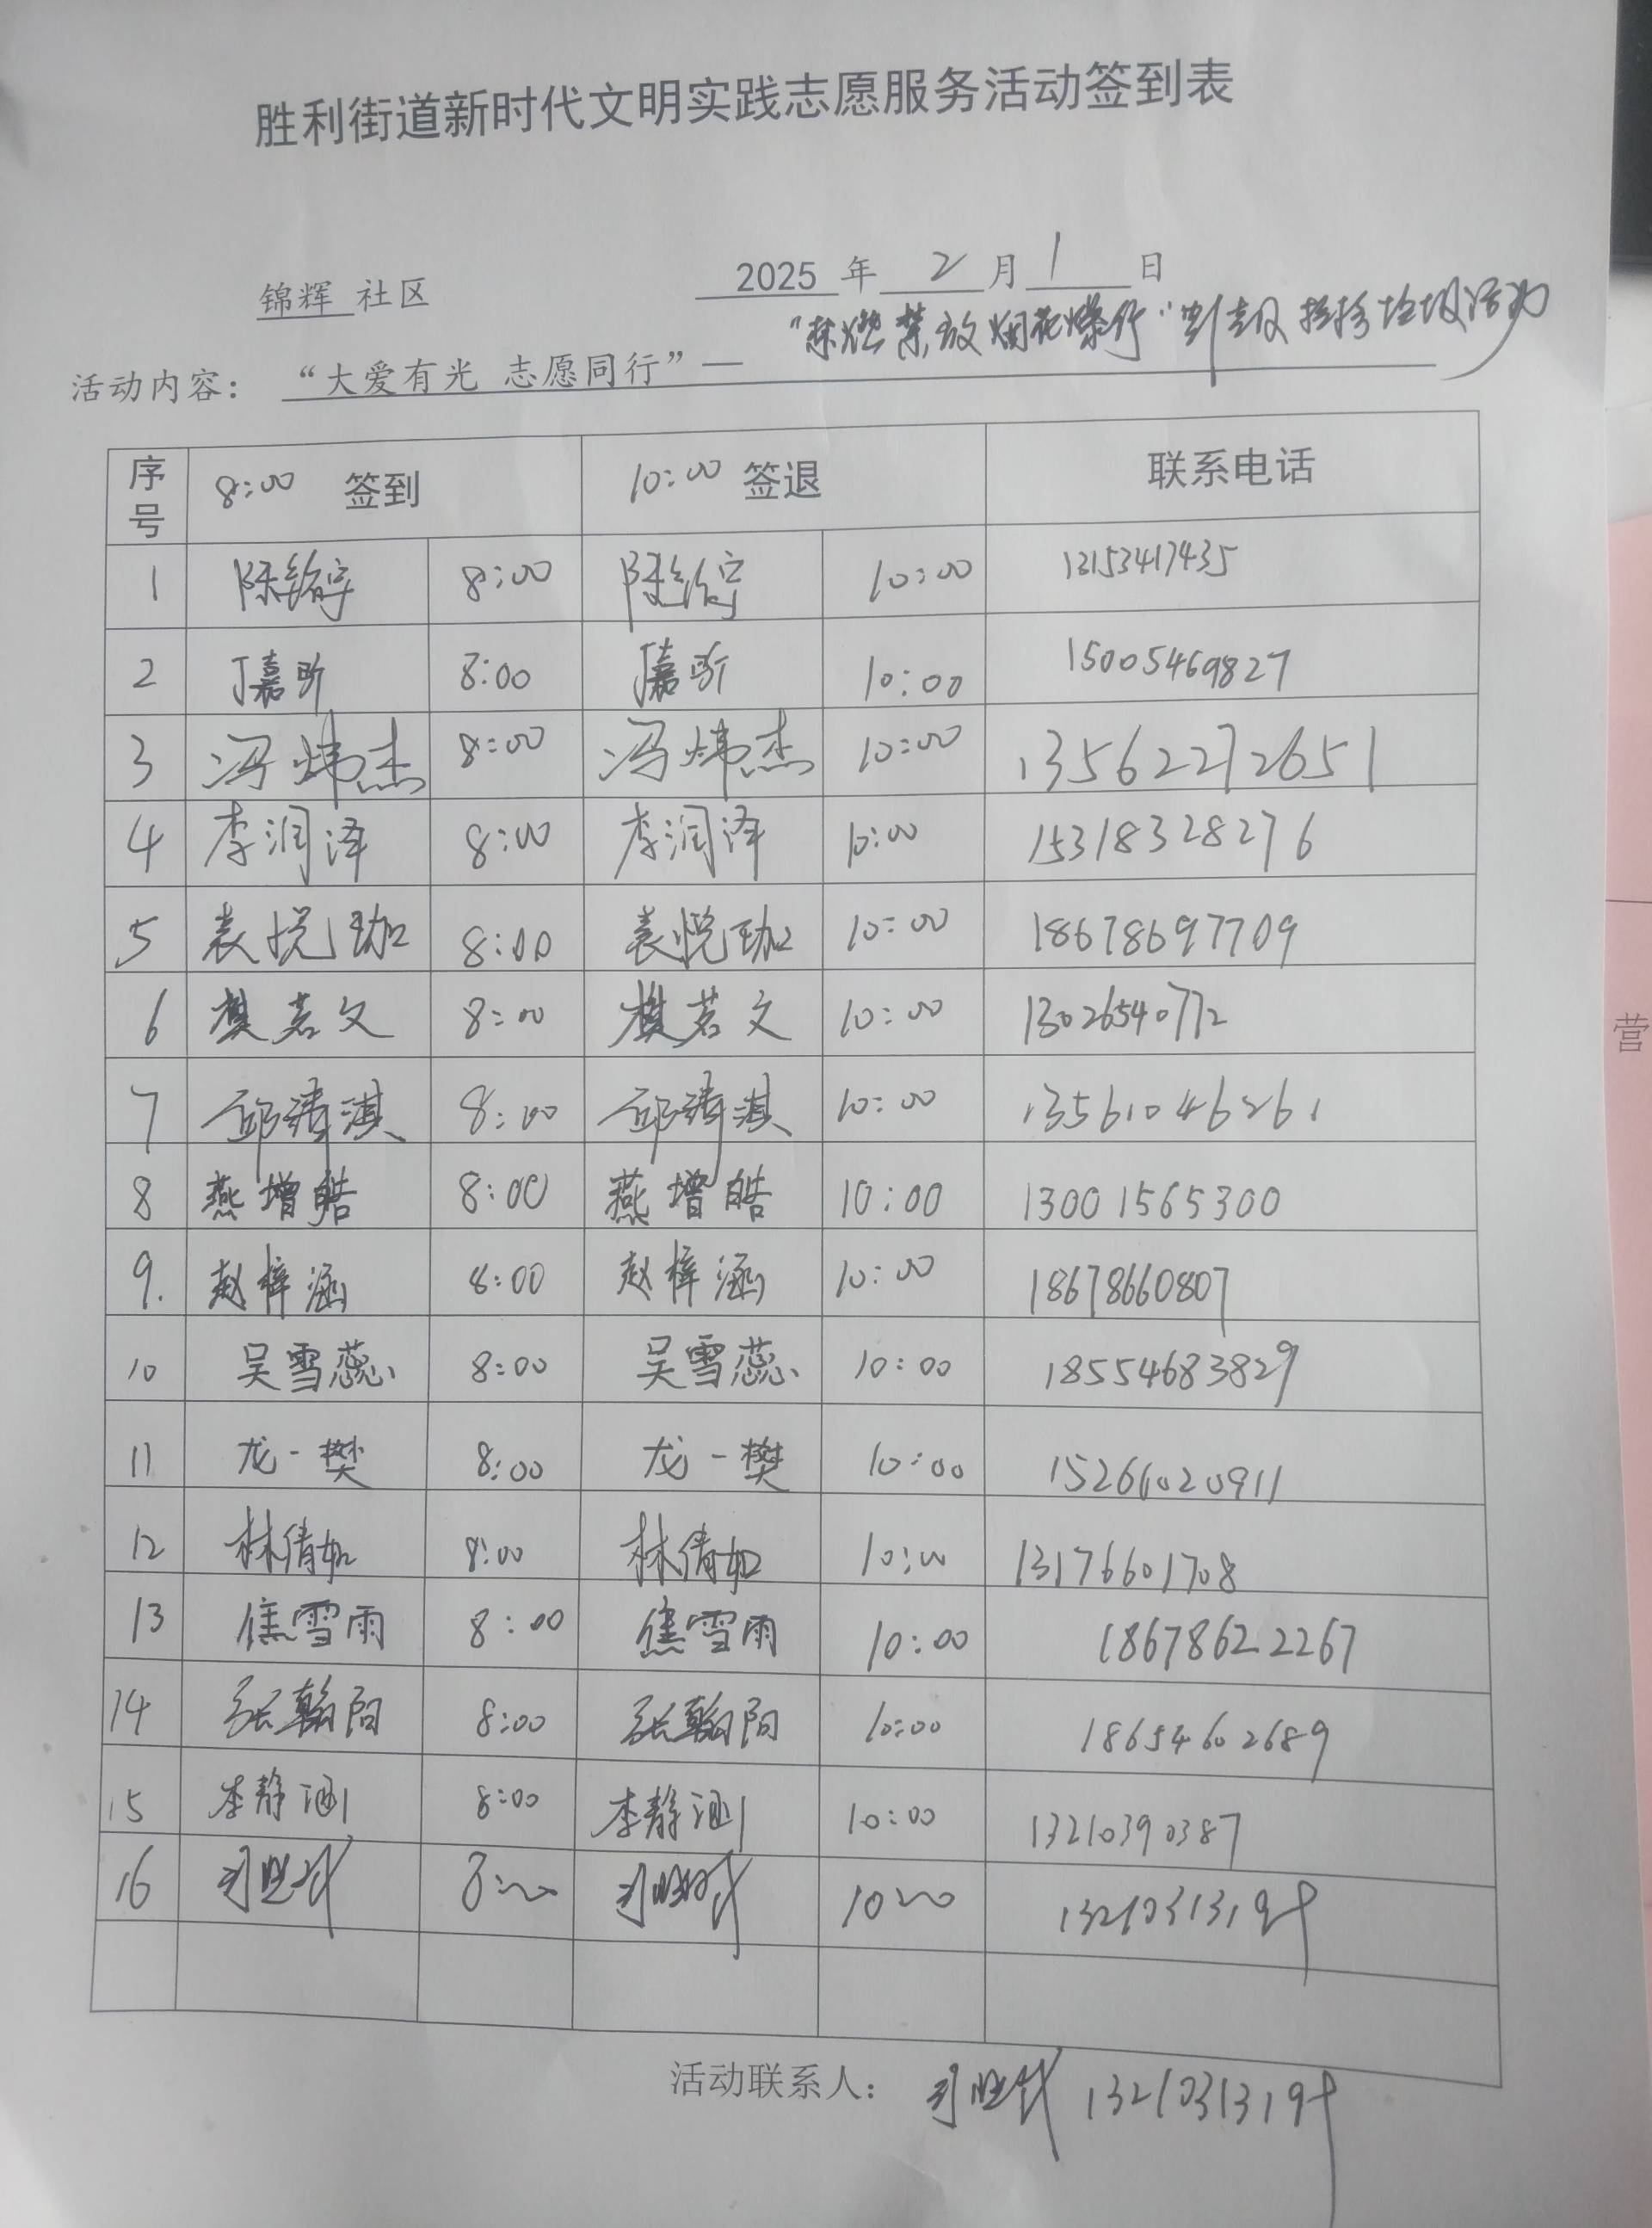 胜利街道新时代文明实践志愿服务活动签到表
锦辉 社区 2025 年 2 月 1 日
“禁燃禁放烟花爆竹”宣传及捡拾垃圾活动
活动内容: “大爱有光 志愿同行”—
序号 8:00 签到 10:00 签退 联系电话
1 陈铭宇 8:00 陈铭宇 10:00 13153417435
2 丁嘉昕 8:00 丁嘉昕 10:00 15005469827
3 冯炜杰 8:00 冯炜杰 10:00 13562272651
4 李润泽 8:00 李润泽 10:00 15318328276
5 袁悦珈 8:00 袁悦珈 10:00 18678697709
6 綦茗文 8:00 綦茗文 10:00 13026540772
7 邱靖淇 8:00 邱靖淇 10:00 13561046261
8 燕增皓 8:00 燕增皓 10:00 13001565300
9. 赵梓涵 8:00 赵梓涵 10:00 18678660807
10 吴雪蕊 8:00 吴雪蕊 10:00 18554683829
11 龙一樊 8:00 龙一樊 10:00 15266020911
12 林倩如 8:00 林倩如 10:00 13176601708
13 焦雪雨 8:00 焦雪雨 10:00 18678622267
14 张翰阳 8:00 张翰阳 10:00 18654602689
15 李静涵 8:00 李静涵 10:00 13210390387
16 8:00 10:00
活动联系人:
营